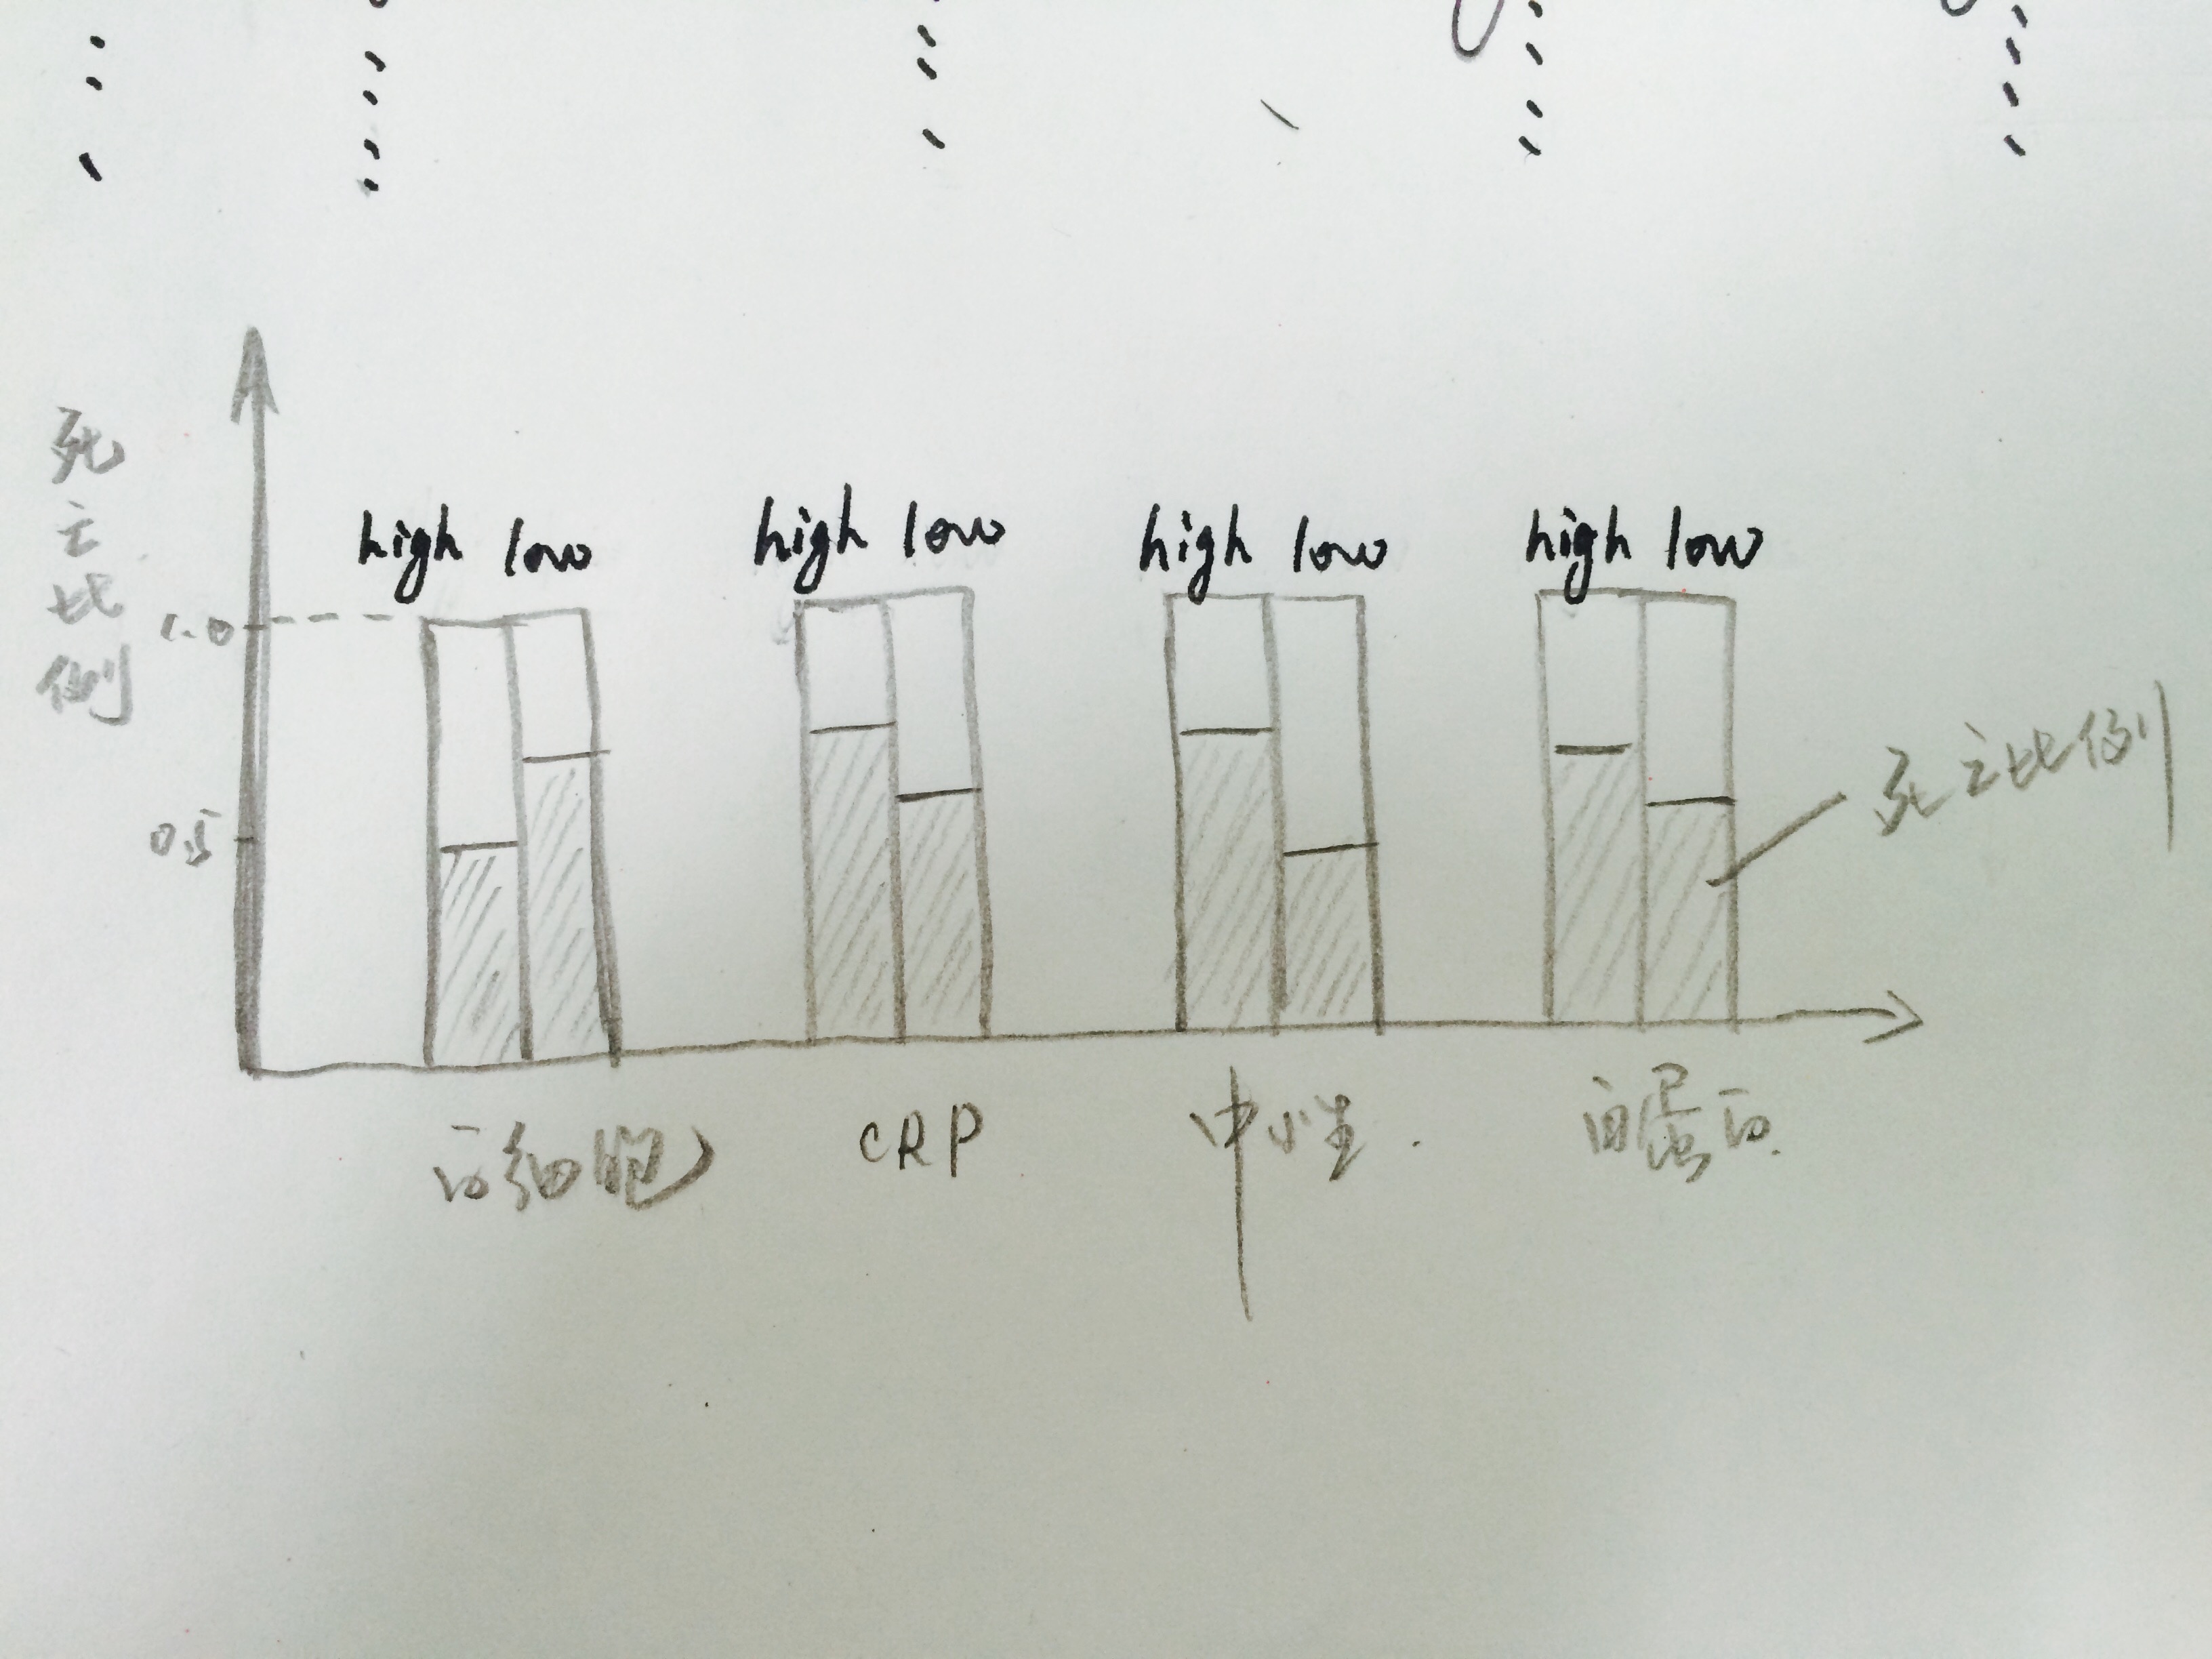 死亡比例
high low high low high low high low
1.0
0.5
死亡比例
白细胞 CRP 中性. 白蛋白.